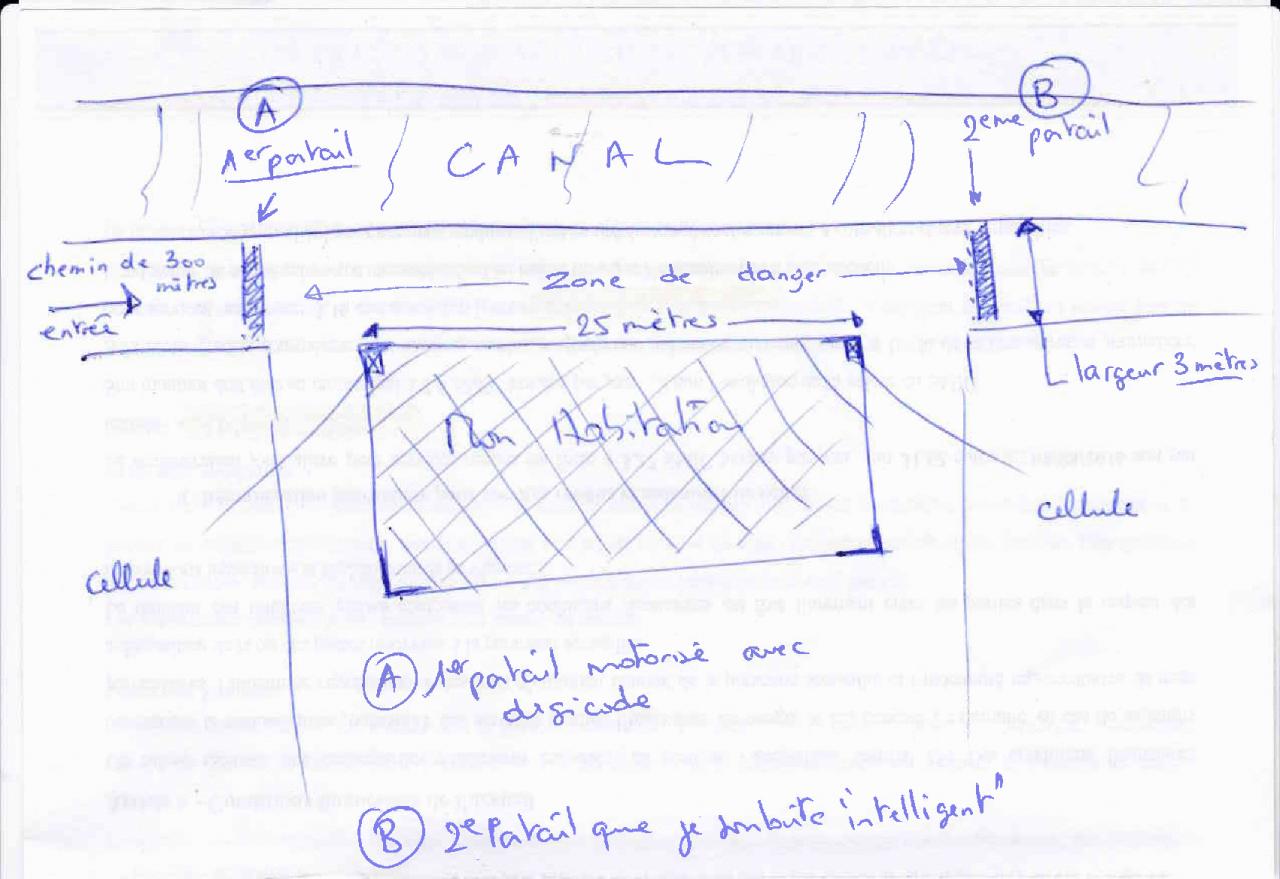 A
B
1er portail
CANAL
2eme portail
chemin de 300 mètres
entrée
zone de danger
25 mètres
largeur 3 mètres
Mon Habitation
cellule
cellule
A 1er portail motorisé avec
digicode
B 2e Portail que je souhaite "intelligent"